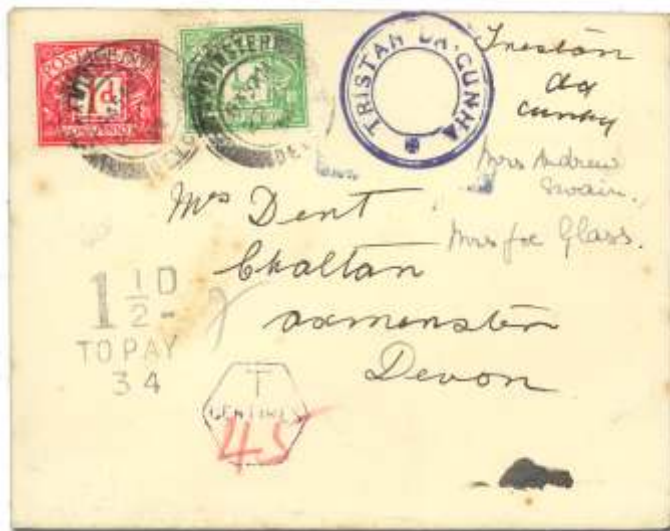 POSTAGE DUE
1d
TRISTAN DA CUNHA
Tristan
da
Cunha
Mrs Andrew
Swain.
Mrs Joe Glass.
Mrs Dent
Chaltan
axminster
Devon
1 1/2 D
TO PAY
34
T
CENTIMES
45